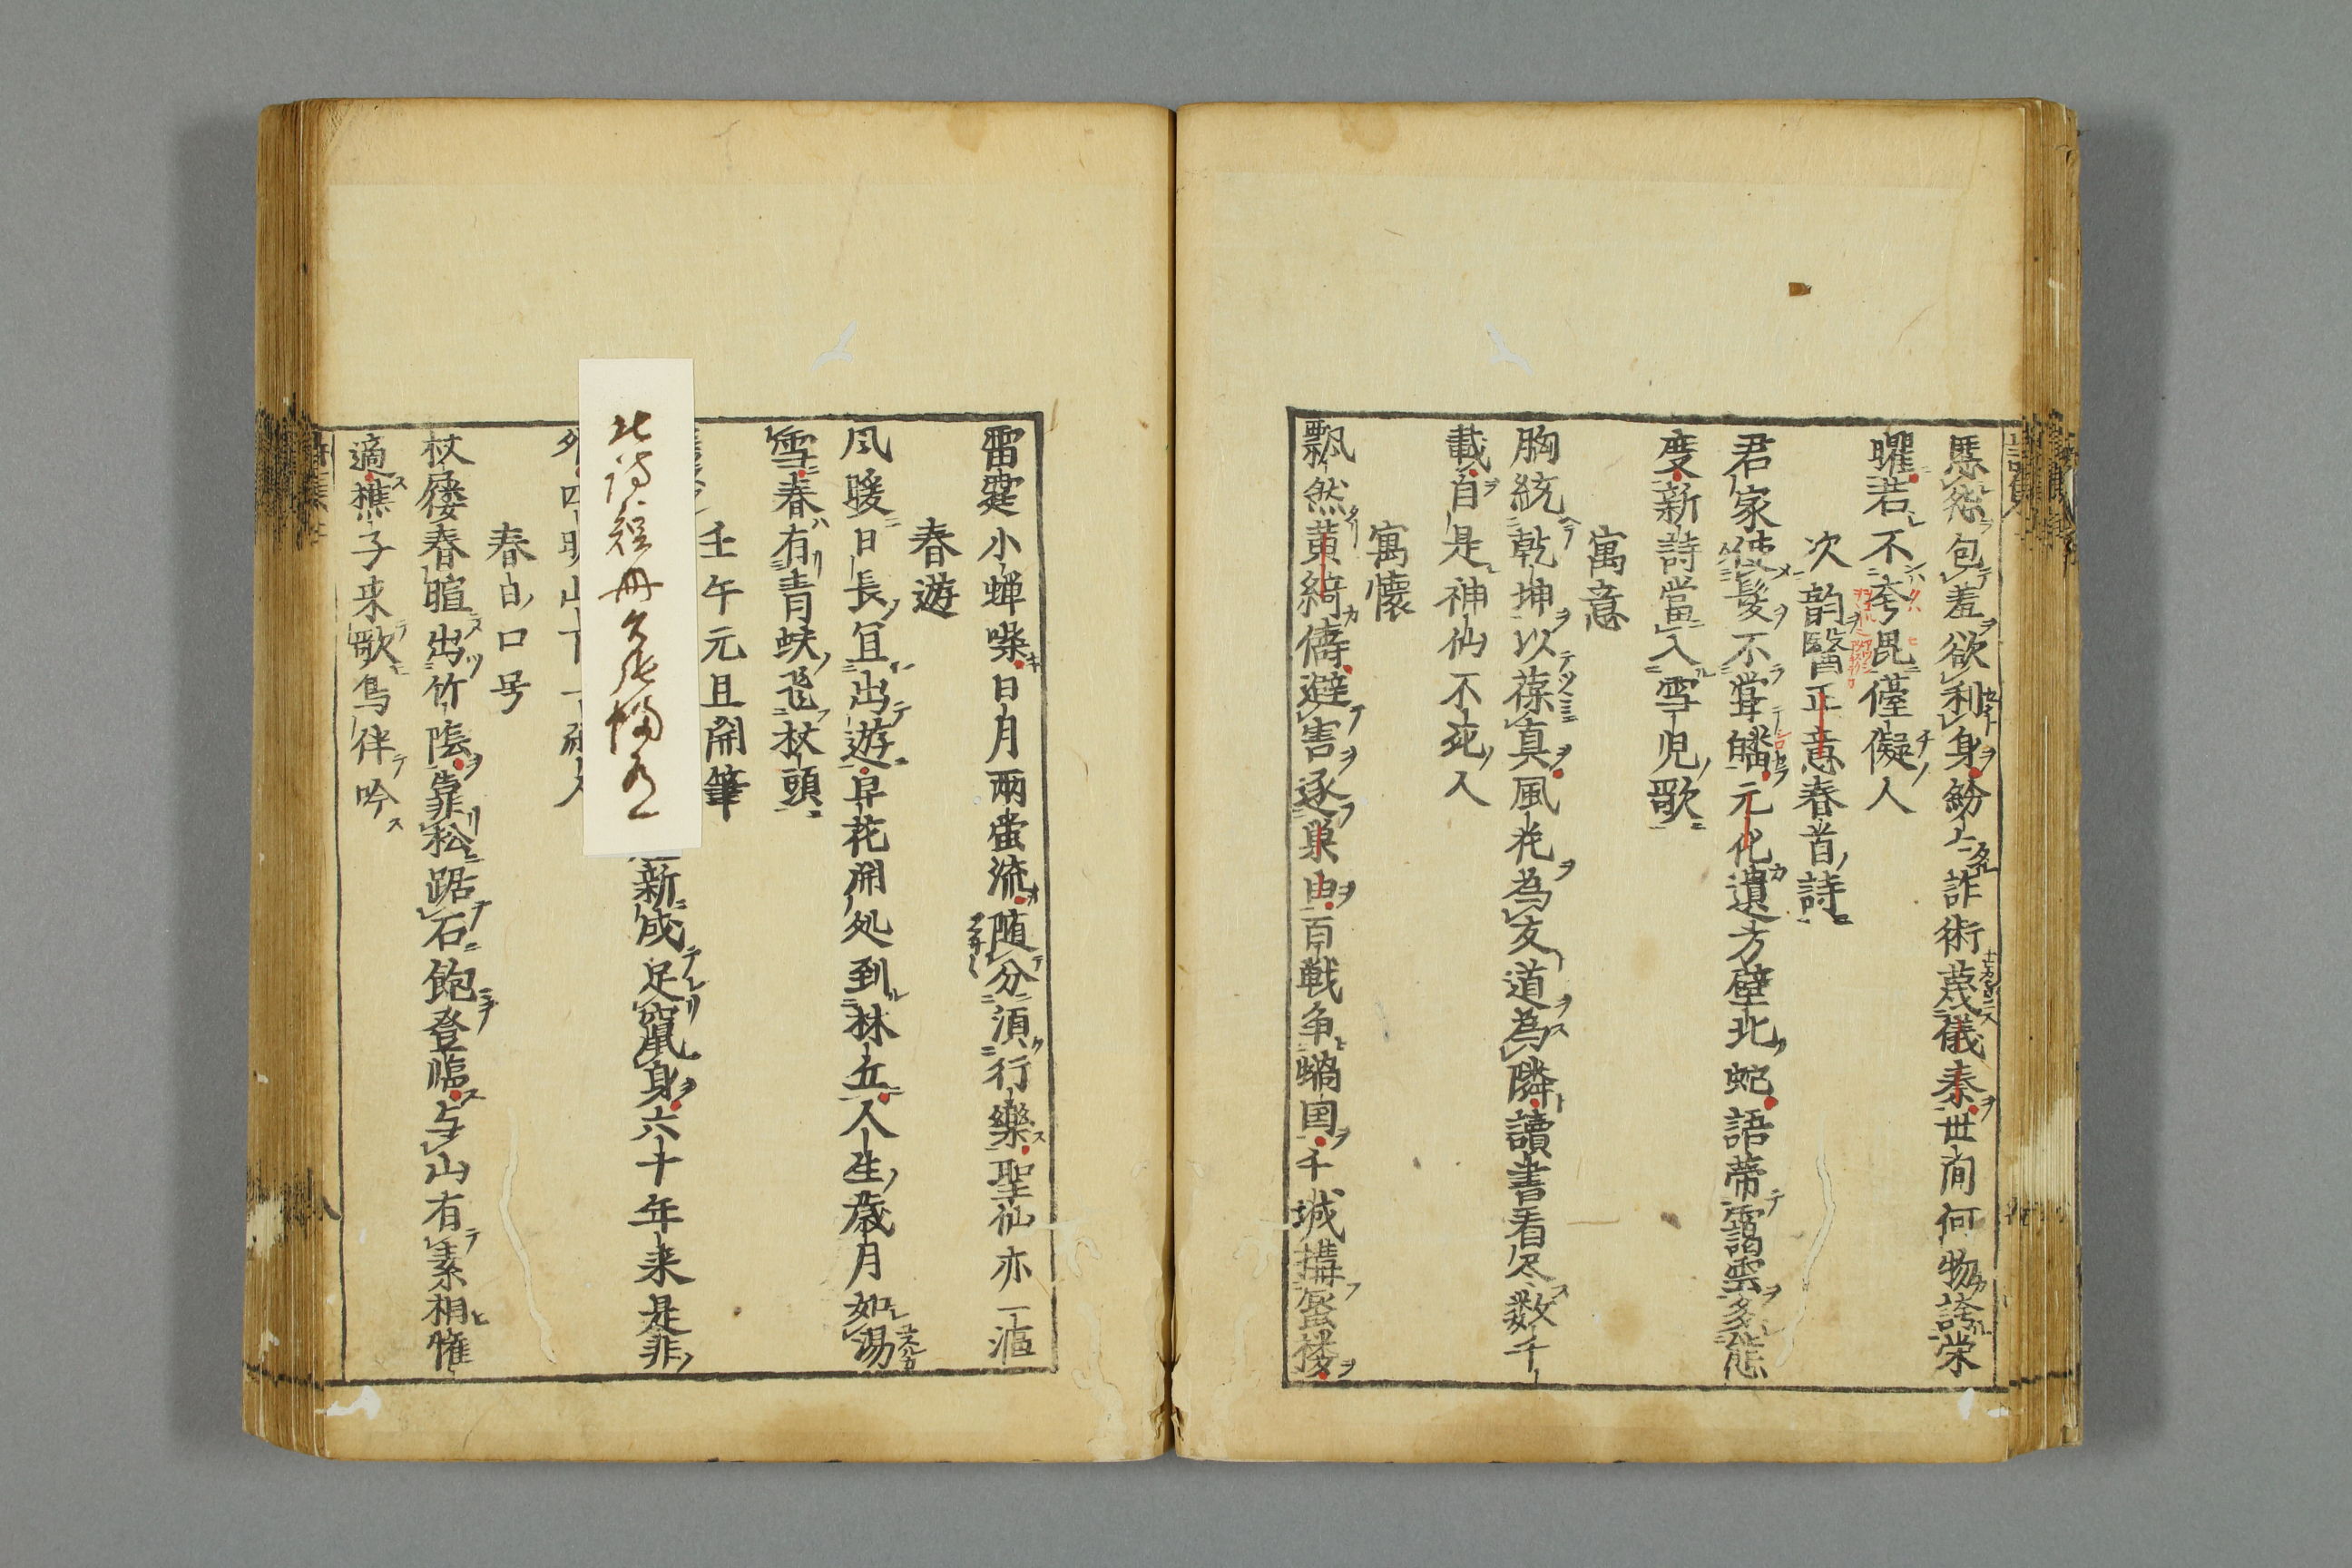 匿怨包羞欲利身紛々詐術蔑儀秦世間何物誇栄
曜若不夸毘儘儗人
次韵醫正意春首詩
君家使髮不聋皤元化遺方壁北蛇語帯靄雲多態
度新詩當入雪児歌
寓意
胸統乾坤以葆真風光為友道為隣讀書看尽数千
載自是神仙不死人
寓懐
飄然黄綺儔避害逐巣由百戦争蝸国千城搆蜃楼
雷霆小蝉噪日月兩蛍流随分須行樂聖仙亦一漚
春遊
风暖日長宜出遊早花開処到林丘人生歳月如湯
雪春有青蚨飛杖頭
壬午元旦開筆
新成足竄身六十年来是非
外四明山下一
此詩短冊久能幅有
春日口号
杖屨春暄出竹陰靠松踞石飽登臨与山有素相懽
適樵子来歌鳥伴吟